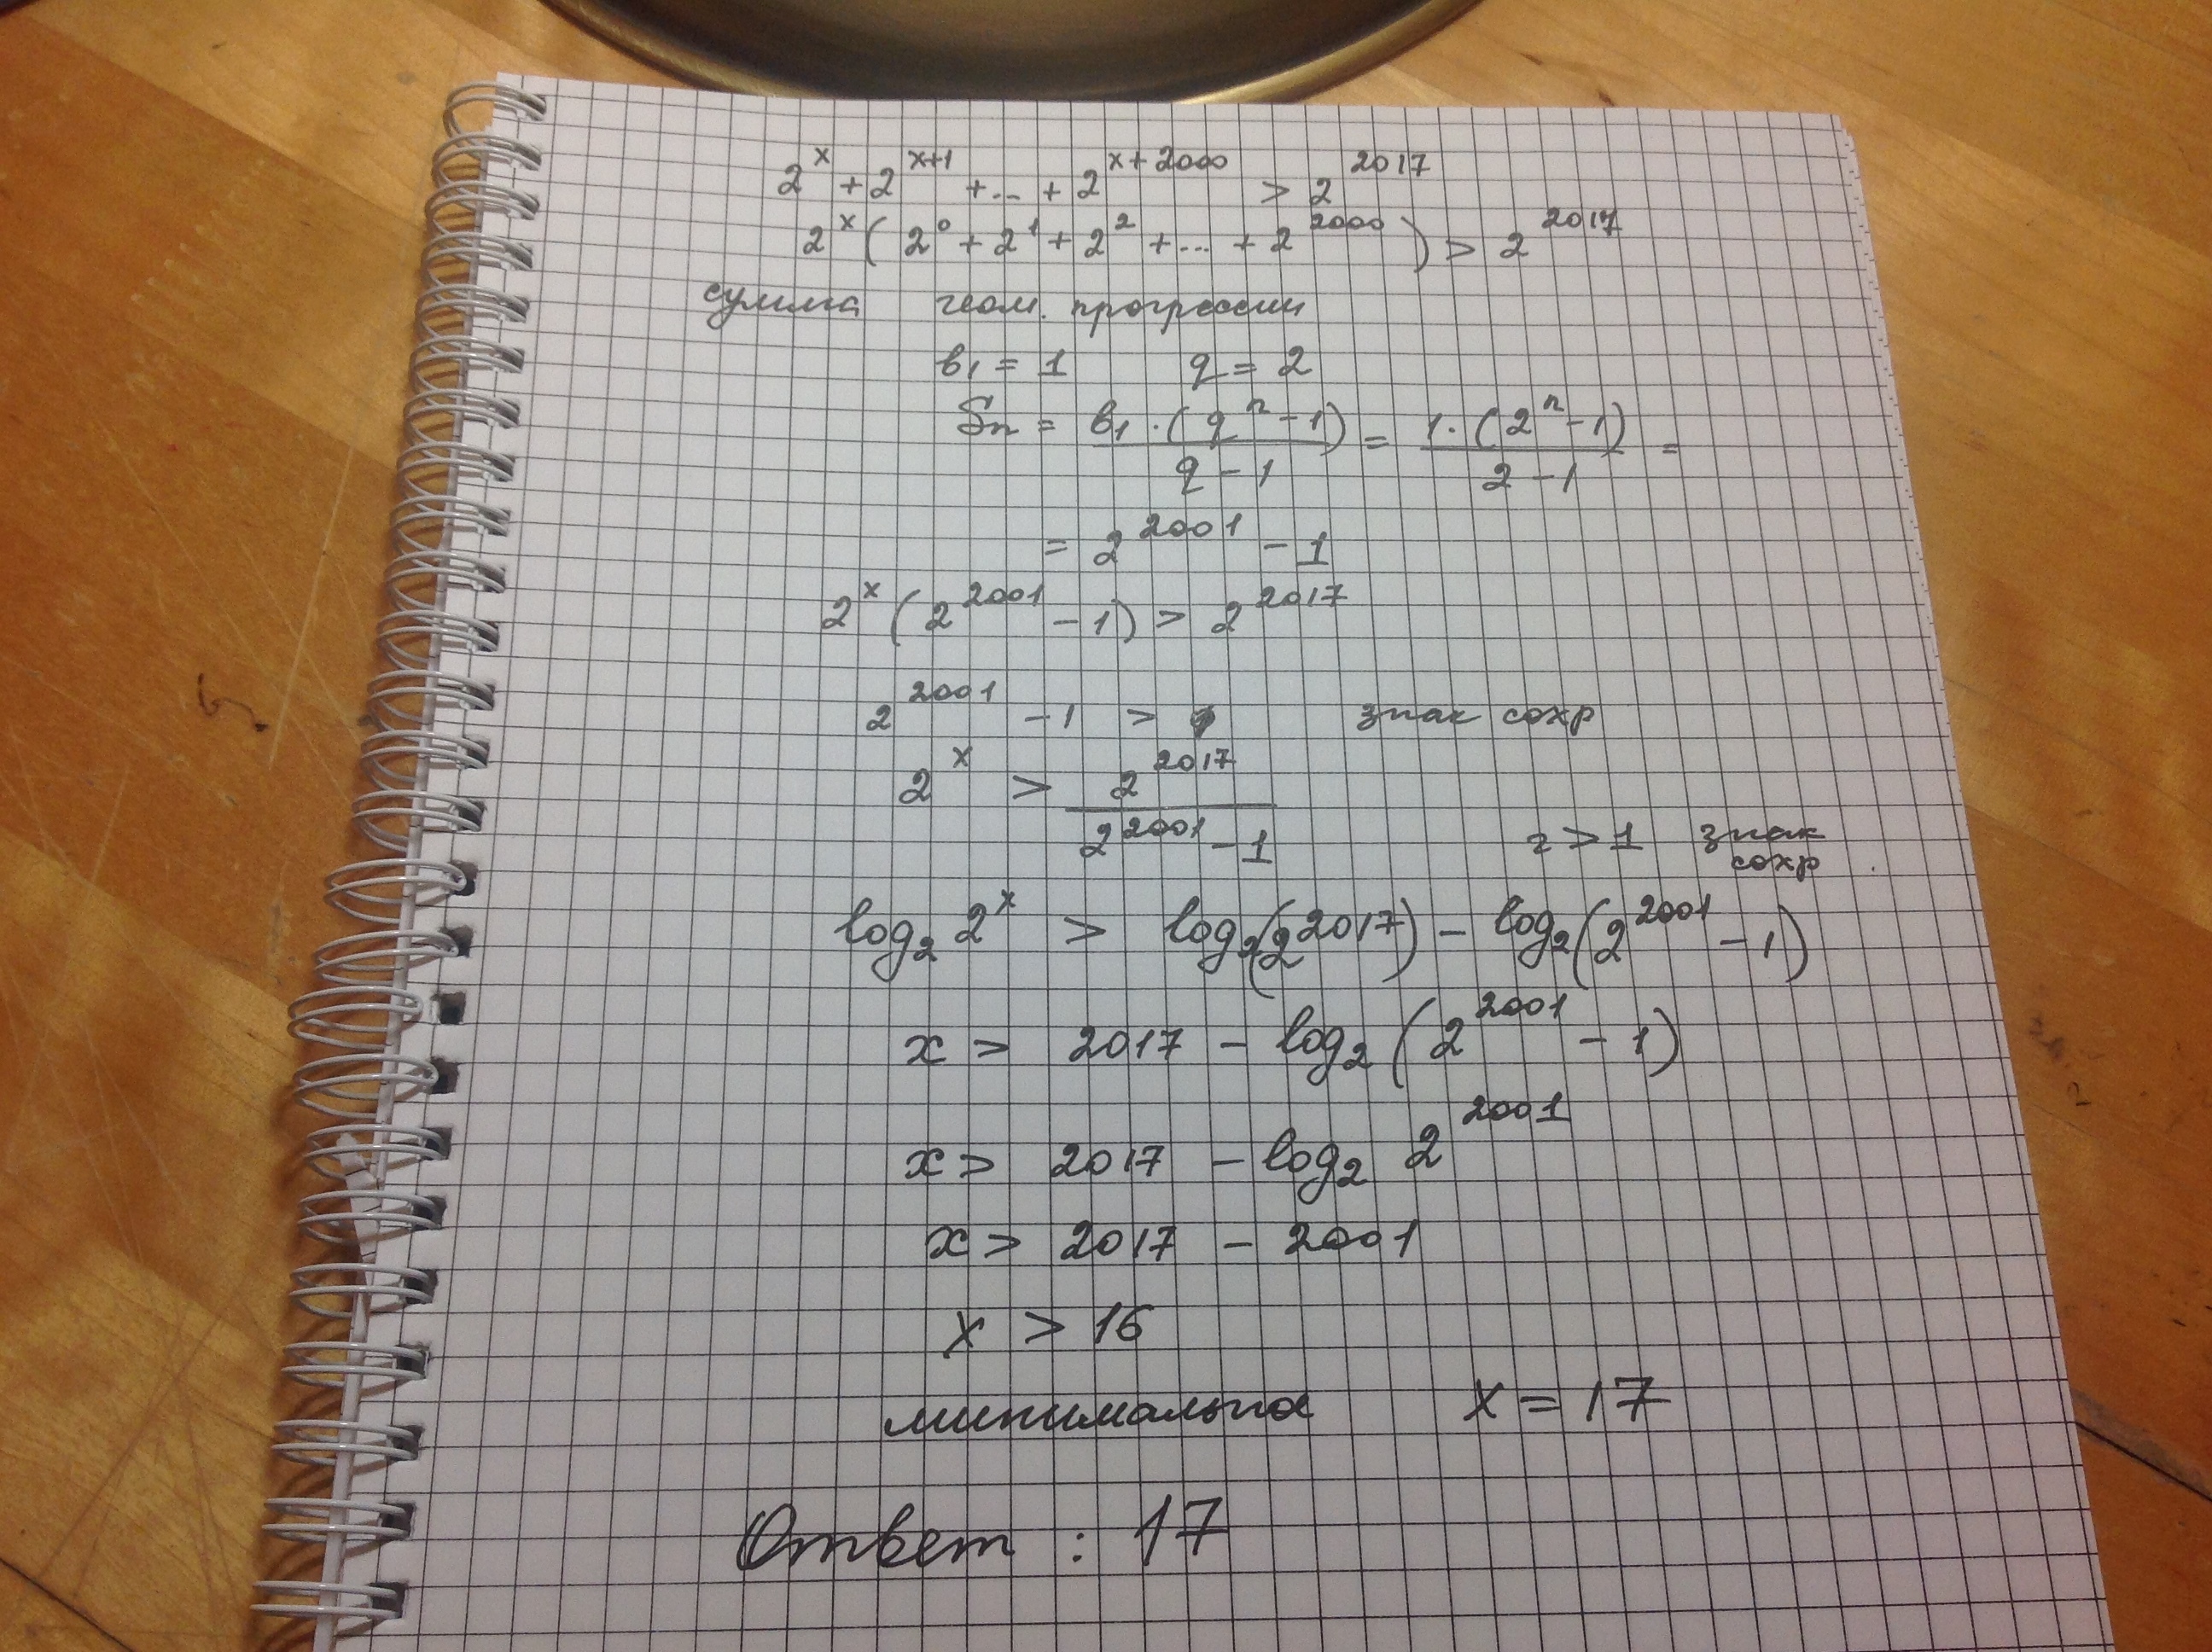 2^x + 2^{x+1} + ... + 2^{x+2000} > 2^{2017}
2^x ( 2^0 + 2^1 + 2^2 + ... + 2^{2000} ) > 2^{2017}
сумма геом. прогрессии
b_1 = 1 q = 2
S_n = \frac{b_1 · (q^n - 1)}{q - 1} = \frac{1 · (2^n - 1)}{2 - 1} =
= 2^{2001} - 1
2^x ( 2^{2001} - 1 ) > 2^{2017}
2^{2001} - 1 > знак сохр
2^x > \frac{2^{2017}}{2^{2001} - 1}
2 > 1 знак
сохр
log_2 2^x > log_2(2^{2017}) - log_2(2^{2001} - 1)
x > 2017 - log_2 ( 2^{2001} - 1 )
x > 2017 - log_2 2^{2001}
x > 2017 - 2001
x > 16
минимальна x = 17
Ответ : 17